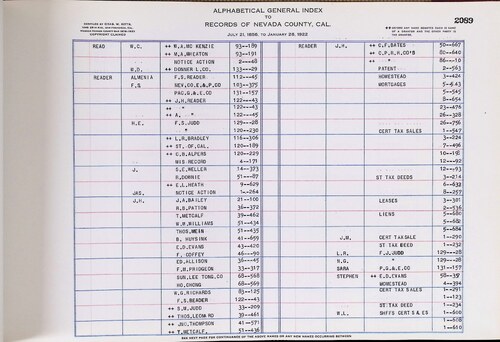 ALPHABETICAL GENERAL INDEX
TO
RECORDS OF NEVADA COUNTY, CAL.
JULY 21, 1856, TO JANUARY 26, 1922
2089
COPYRIGHT CLAIMED
READ W.C. ++ W.A.MC KENZIE 93--189
++ M.A.WHERTON 93--191
NOTICE ACTION 2---48
W.D. ++ DONNER L.CO. 133--29
READER ALMENIA F.S.READER 112--45
F.S NEV.CO.E.&P.CO 103--375
PAC.G.&E.CO 131--157
++ J.H.READER 122--43
++ " 122--43
++ A. " 122--45
H.E. F.S.JUDD 129--28
" 120--230
++ L.R.BRADLEY 116--306
++ ST.OF.CAL. 120--189
++ C.B.ALPERS 120--229
MIS RECORD 4--171
J. S.E.WELLER 74--373
R.DORNIE 51---87
++ E.L.HEATH 9--629
JAS. NOTICE ACTION 1--264
J.H. J.A.BAILEY 21--100
R.B.PATTON 36--372
T.METCALF 39--462
W.M.WILLIAMS 51--434
THOS.MEIN 51--435
B. HUYSINK 41--659
E.D.EVANS 43--420
F. COFFEY 46--90
ED.ALLISON 32--45
F.M.PRIDGEON 33--317
SUN,LEE TONG,CO 68--568
HO,CHONG 68--569
W.G.RICHARDS 83--125
F.S.READER 122--43
++ S.W.JUDD 33--209
++ THOS,LEONARD 39--461
++ JNO.THOMPSON 41--571
++ T.METCALF. 51--436
READER J.H. ++ C.F.BATES 50--667
++ C.P.R.R.CO'S 80--640
++ " 86--10
PATENT 2--563
HOMESTEAD 3--424
MORTGAGES 5--643
5--645
8--654
23--478
26--328
26--756
CERT TAX SALES 1--547
3--224
7--496
10--198
12--92
12--93
ST TAX DEEDS 3--214
6--632
8--257
LEASES 3--381
2--536
LIENS 5--680
5--682
5--684
J.M. CERT TAX SALE 1--290
ST TAX DEED 1--232
L.R. F.J.JUDD 129--28
N.G. " 129--28
SARA P.G.&E.CO 131--157
STEPHEN ++ E.D.EVANS 58--35
HOMESTEAD 4--394
CERT TAX SALES 1--291
1--123
ST.TAX DEED 1--234
W.L. SHFFS CERT S&D 1--608
1--608
1--610
SEE NEXT PAGE FOR CONTINUANCE OF THE ABOVE NAMES OR ANY NEW NAMES OCCURRING BETWEEN